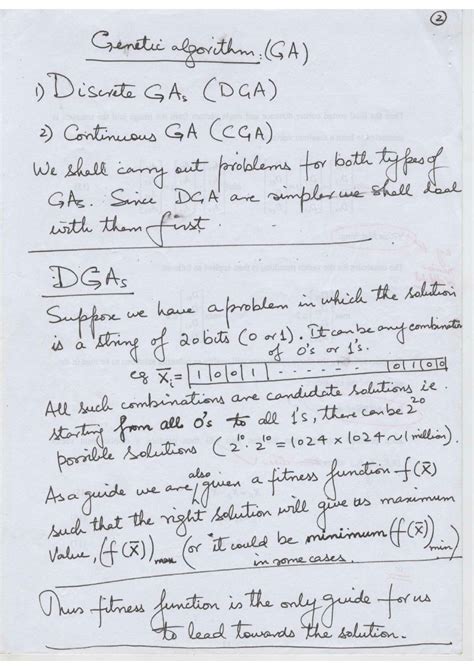 2
Genetic algorithm (GA)
1) Discrete GAs (DGA)
2) Continuous GA (CGA)
We shall carry out problems for both types of
GAs. Since DGA are simpler we shall deal
with them first.
DGAs
Suppose we have a problem in which the solution
is a string of 20 bits (0 or 1). It can be any combinatio
of 0's or 1's.
eg X̄i = 1 0 0 1 - - - - - - 0 1 0 0
All such combinations are candidate solutions i.e.
starting from all 0's to all 1's, there can be 2^20
possible solutions (2^10 · 2^10 = 1024 × 1024 ~ 1 million).
As a guide we are also given a fitness function f(X̄)
such that the right solution will give us maximum
value, (f(X̄))max (or it could be minimum (f(X̄))min)
in some cases.
Thus fitness function is the only guide for us
to lead towards the solution.